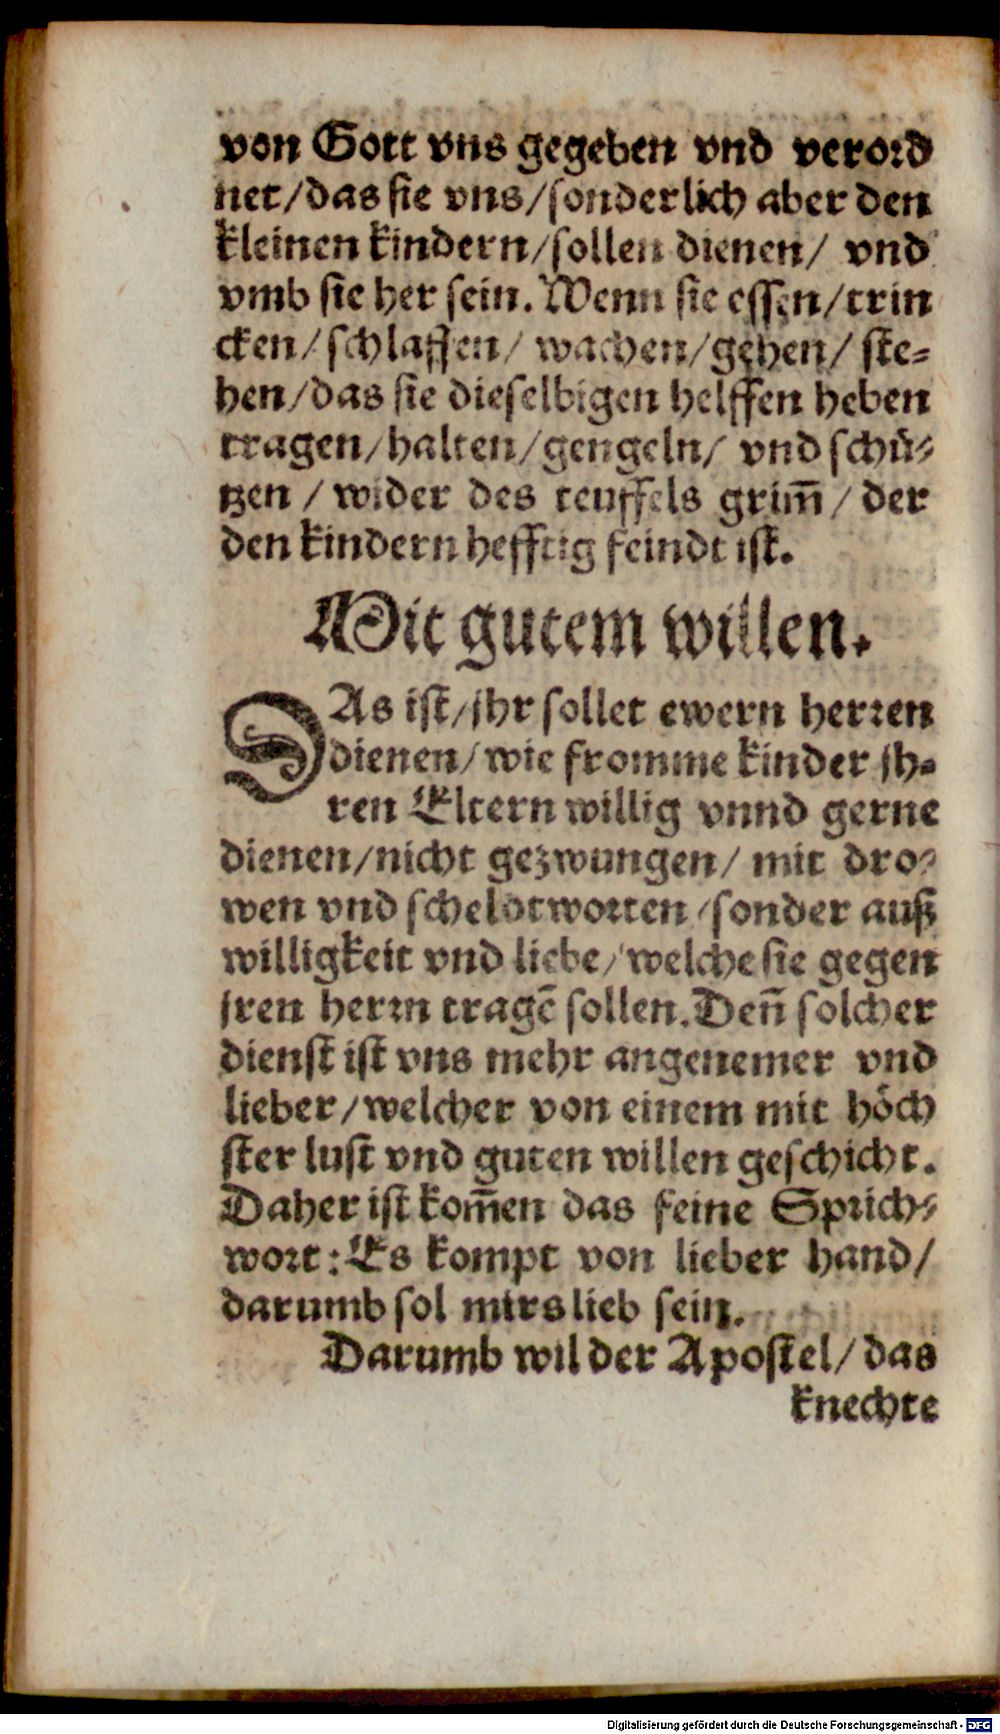 von Gott vns gegeben vnd verord
net/das sie vns/sonderlich aber den
kleinen kindern/sollen dienen/ vnd
vmb sie her sein. Wenn sie essen/trin
cken/schlaffen/ wachen/gehen/ ste-
hen/das sie dieselbigen helffen heben
tragen/halten/gengeln/ vnd schü-
tzen / wider des teuffels grim̄/ der
den kindern hefftig feindt ist.
Mit gutem willen.
DAs ist/jhr sollet ewern herren
dienen/wie fromme kinder jh-
ren Eltern willig vnnd gerne
dienen/nicht gezwungen/ mit dro-
wen vnd scheldtworten/sonder auß
willigkeit vnd liebe/welche sie gegen
jren herrn tragē sollen. Den̄ solcher
dienst ist vns mehr angenemer vnd
lieber/welcher von einem mit höch
ster lust vnd guten willen geschicht.
Daher ist kom̄en das feine Sprich-
wort: Es kompt von lieber hand/
darumb sol mirs lieb sein.
Darumb wil der Apostel/ das
knechte
Digitalisierung gefördert durch die Deutsche Forschungsgemeinschaft - DFG